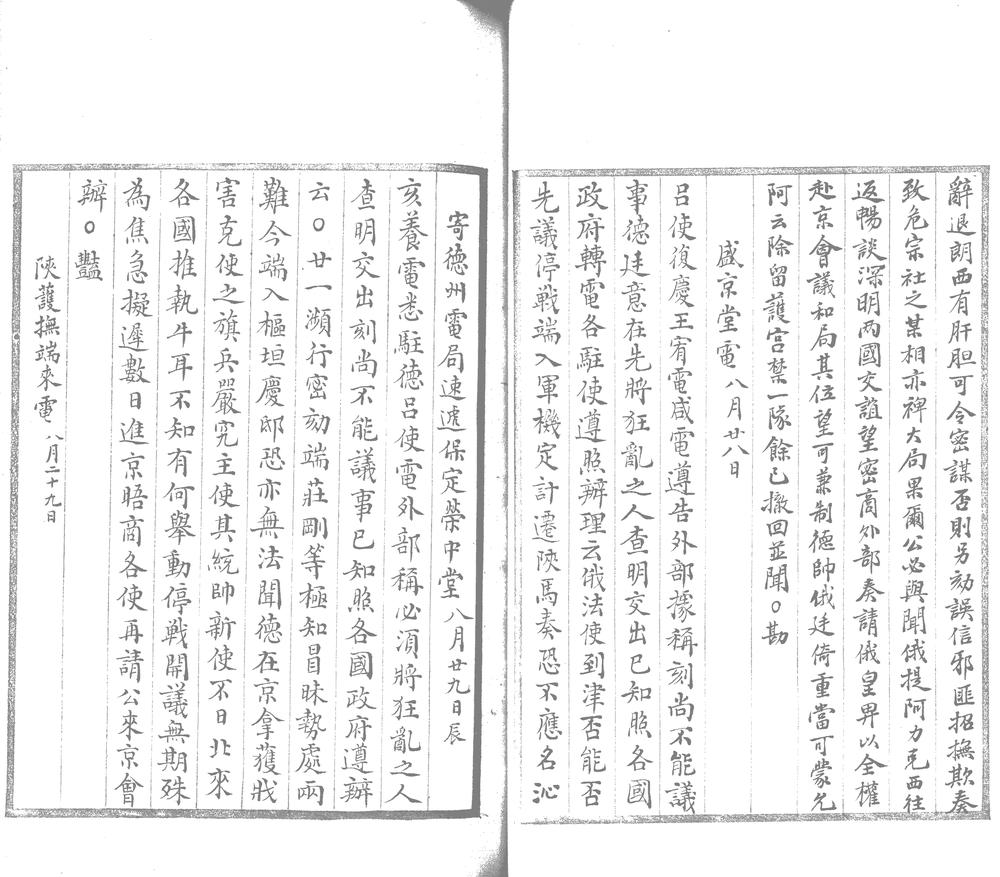 辭退朗西有肝胆可令密謀否則另劾誤信邪匪招撫欺奏
致危宗社之某相亦裨大局果爾公必與聞俄提阿力克西往
返暢談深明两國交誼望密商外部奏請俄皇畀以全權
赴京會議和局其位望可兼制德帥俄廷倚重當可蒙允
阿云除留護宮禁一隊餘已撤回並聞○勘
盛京堂電 八月廿八日
呂使復慶王宥電咸電遵告外部據稱刻尚不能議
事德廷意在先將狂亂之人查明交出已知照各國
政府轉電各駐使遵照辦理云俄法使到津否能否
先議停戰端入軍機定計遷陝馬奏恐不應名沁
寄德州電局速遞保定榮中堂 八月廿九日辰
亥養電悉駐德呂使電外部稱必須將狂亂之人
查明交出刻尚不能議事已知照各國政府遵辦
云○廿一瀕行密劾端莊剛等極知冒昧勢處兩
難今端入樞垣慶邸恐亦無法聞德在京拿獲戕
害克使之旗兵嚴究主使其統帥新使不日北來
各國推執牛耳不知有何舉動停戰開議無期殊
為焦急擬遲數日進京晤商各使再請公來京會
辦○豔
陝護撫端來電 八月二十九日